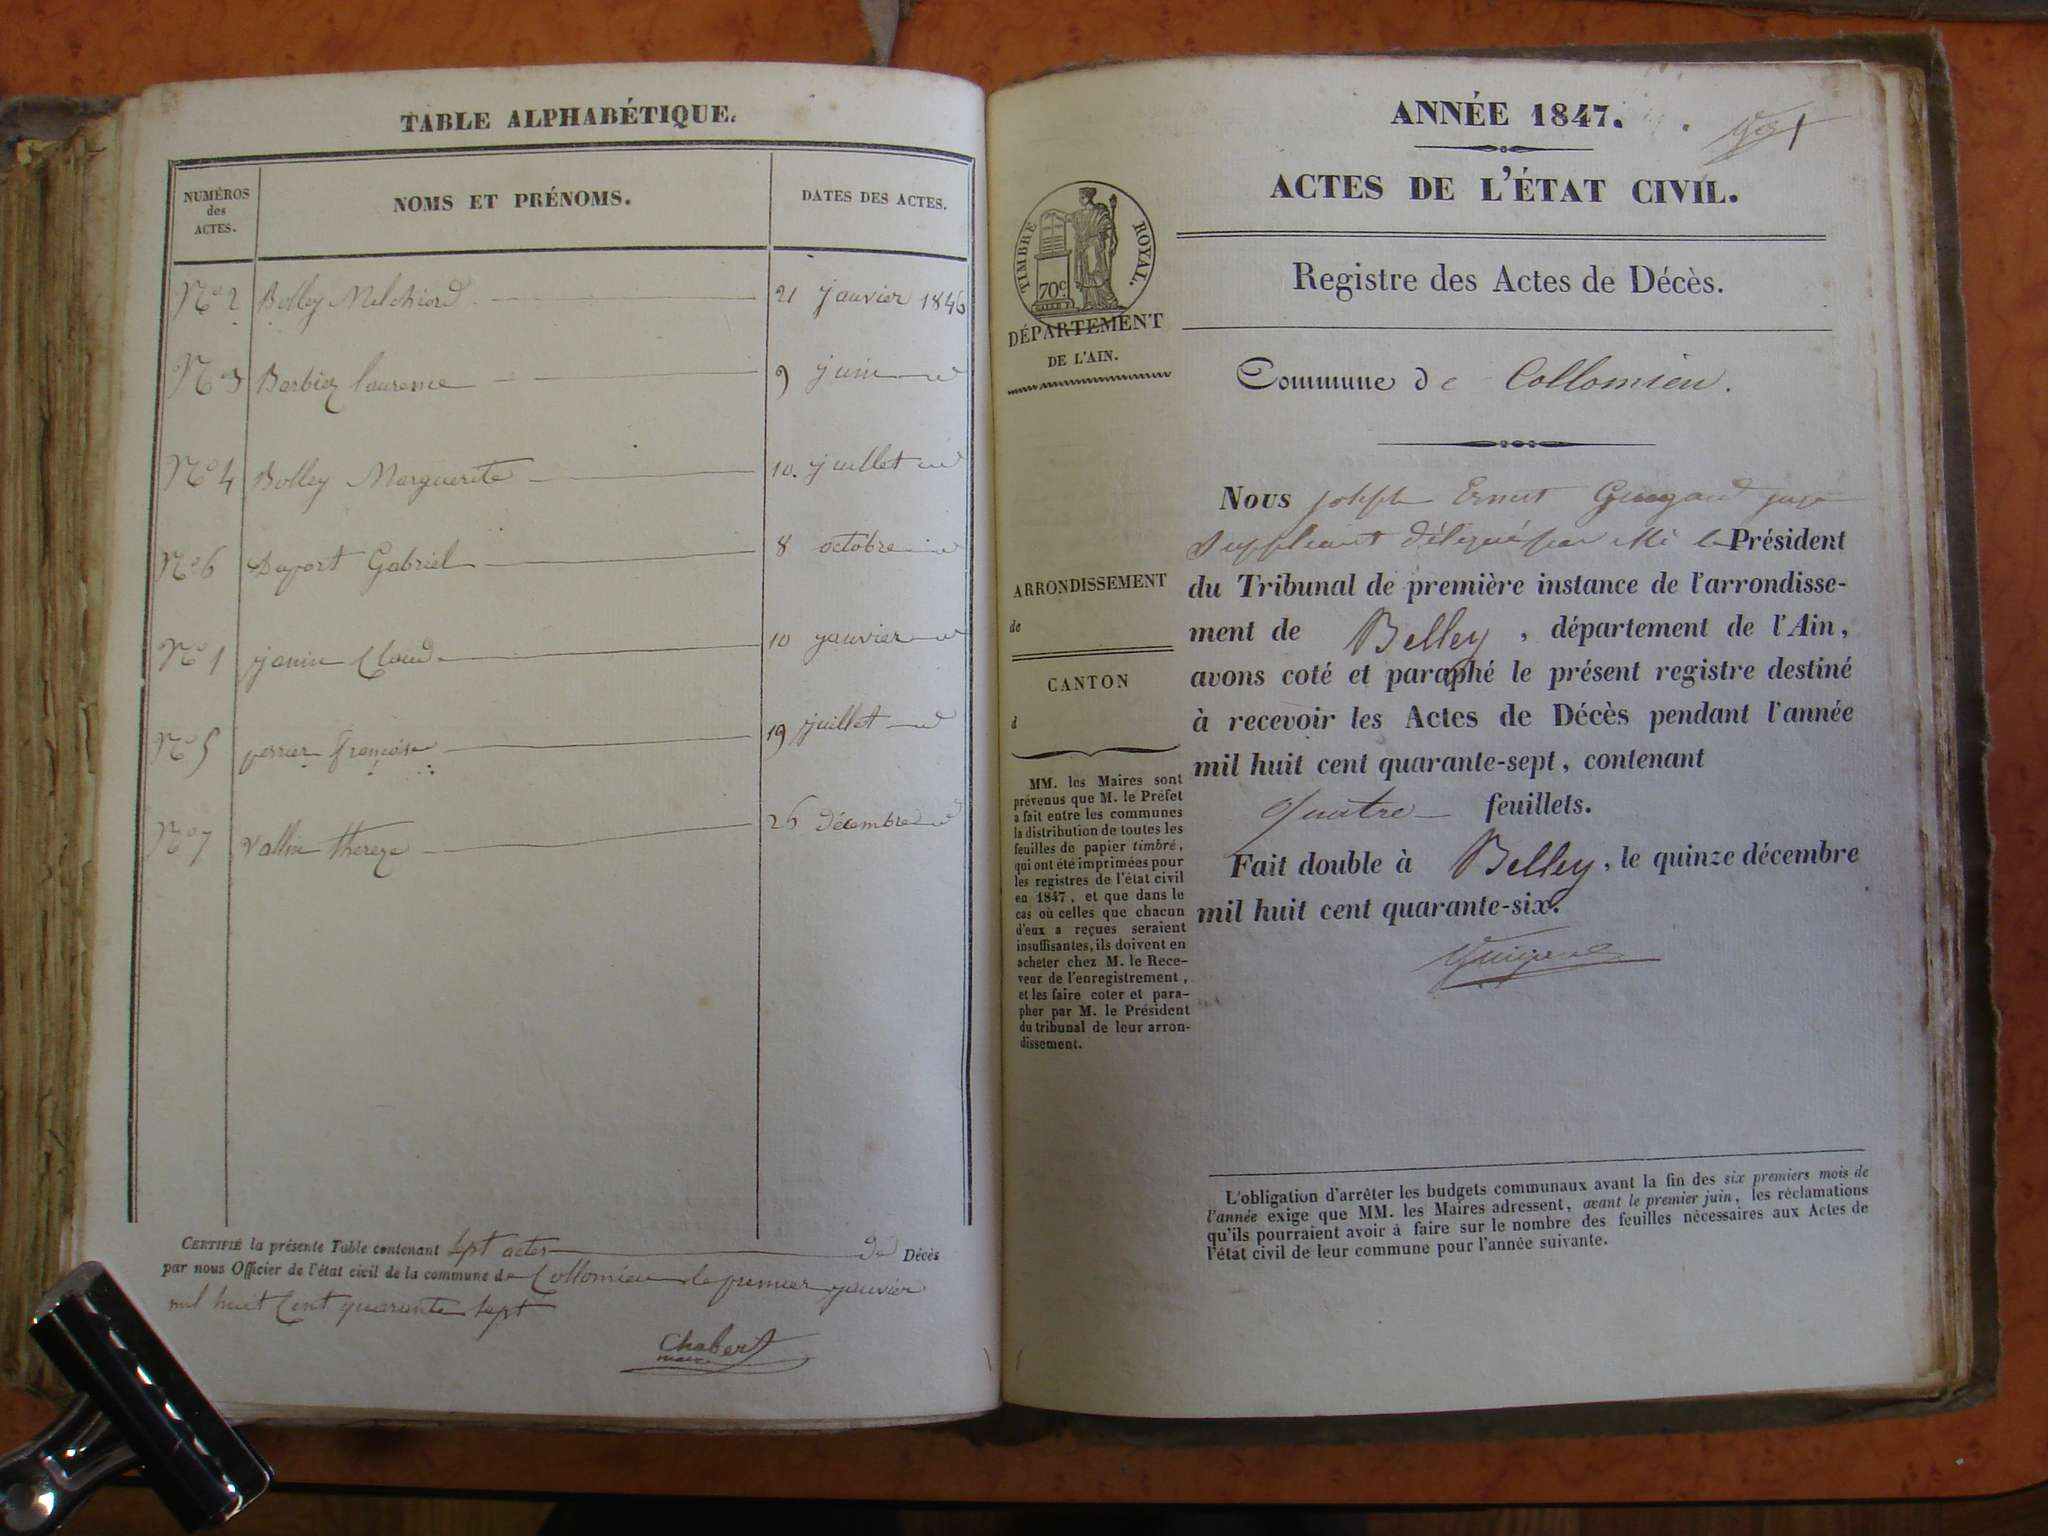 TABLE ALPHABÉTIQUE.
NUMÉROS
des
ACTES.
NOMS ET PRÉNOMS.
DATES DES ACTES.
N° 2 Bolley Melchiord 21 janvier 1846
N° 3 Barbier laurence 9 juin id
N° 4 Bolley Marguerite 10. juillet id
N° 6 Duport Gabriel 8 octobre id
N° 1 janin Claude 10 janvier id
N° 5 perrier françoise 19 juillet id
N° 7 Vallin thereze 26 décembre id
CERTIFIÉ la présente Table contenant sept actes de Décès
par nous Officier de l'état civil de la commune de Collomieu le premier janvier
mil huit Cent quarante sept
Chabert
maire
ANNÉE 1847.
ACTES DE L'ÉTAT CIVIL.
Registre des Actes de Décès.
Commune de Collomieu.
TIMBRE ROYAL.
70c
DÉPARTEMENT
DE L'AIN.
ARRONDISSEMENT
de
CANTON
d
MM. les Maires sont
prévenus que M. le Préfet
a fait entre les communes
la distribution de toutes les
feuilles de papier timbré,
qui ont été imprimées pour
les registres de l'état civil
en 1847, et que dans le
cas où celles que chacun
d'eux a reçues seraient
insuffisantes, ils doivent en
acheter chez M. le Rece-
veur de l'enregistrement,
et les faire coter et para-
pher par M. le Président
du tribunal de leur arron-
dissement.
Nous joseph Ernest Guigard juge
Suppléant délégué par Mr le Président
du Tribunal de première instance de l'arrondisse-
ment de Belley, département de l'Ain,
avons coté et paraphé le présent registre destiné
à recevoir les Actes de Décès pendant l'année
mil huit cent quarante-sept, contenant
quatre feuillets.
Fait double à Belley, le quinze décembre
mil huit cent quarante-six.
Guigard
L'obligation d'arrêter les budgets communaux avant la fin des six premiers mois de
l'année exige que MM. les Maires adressent, avant le premier juin, les réclamations
qu'ils pourraient avoir à faire sur le nombre des feuilles nécessaires aux Actes de
l'état civil de leur commune pour l'année suivante.